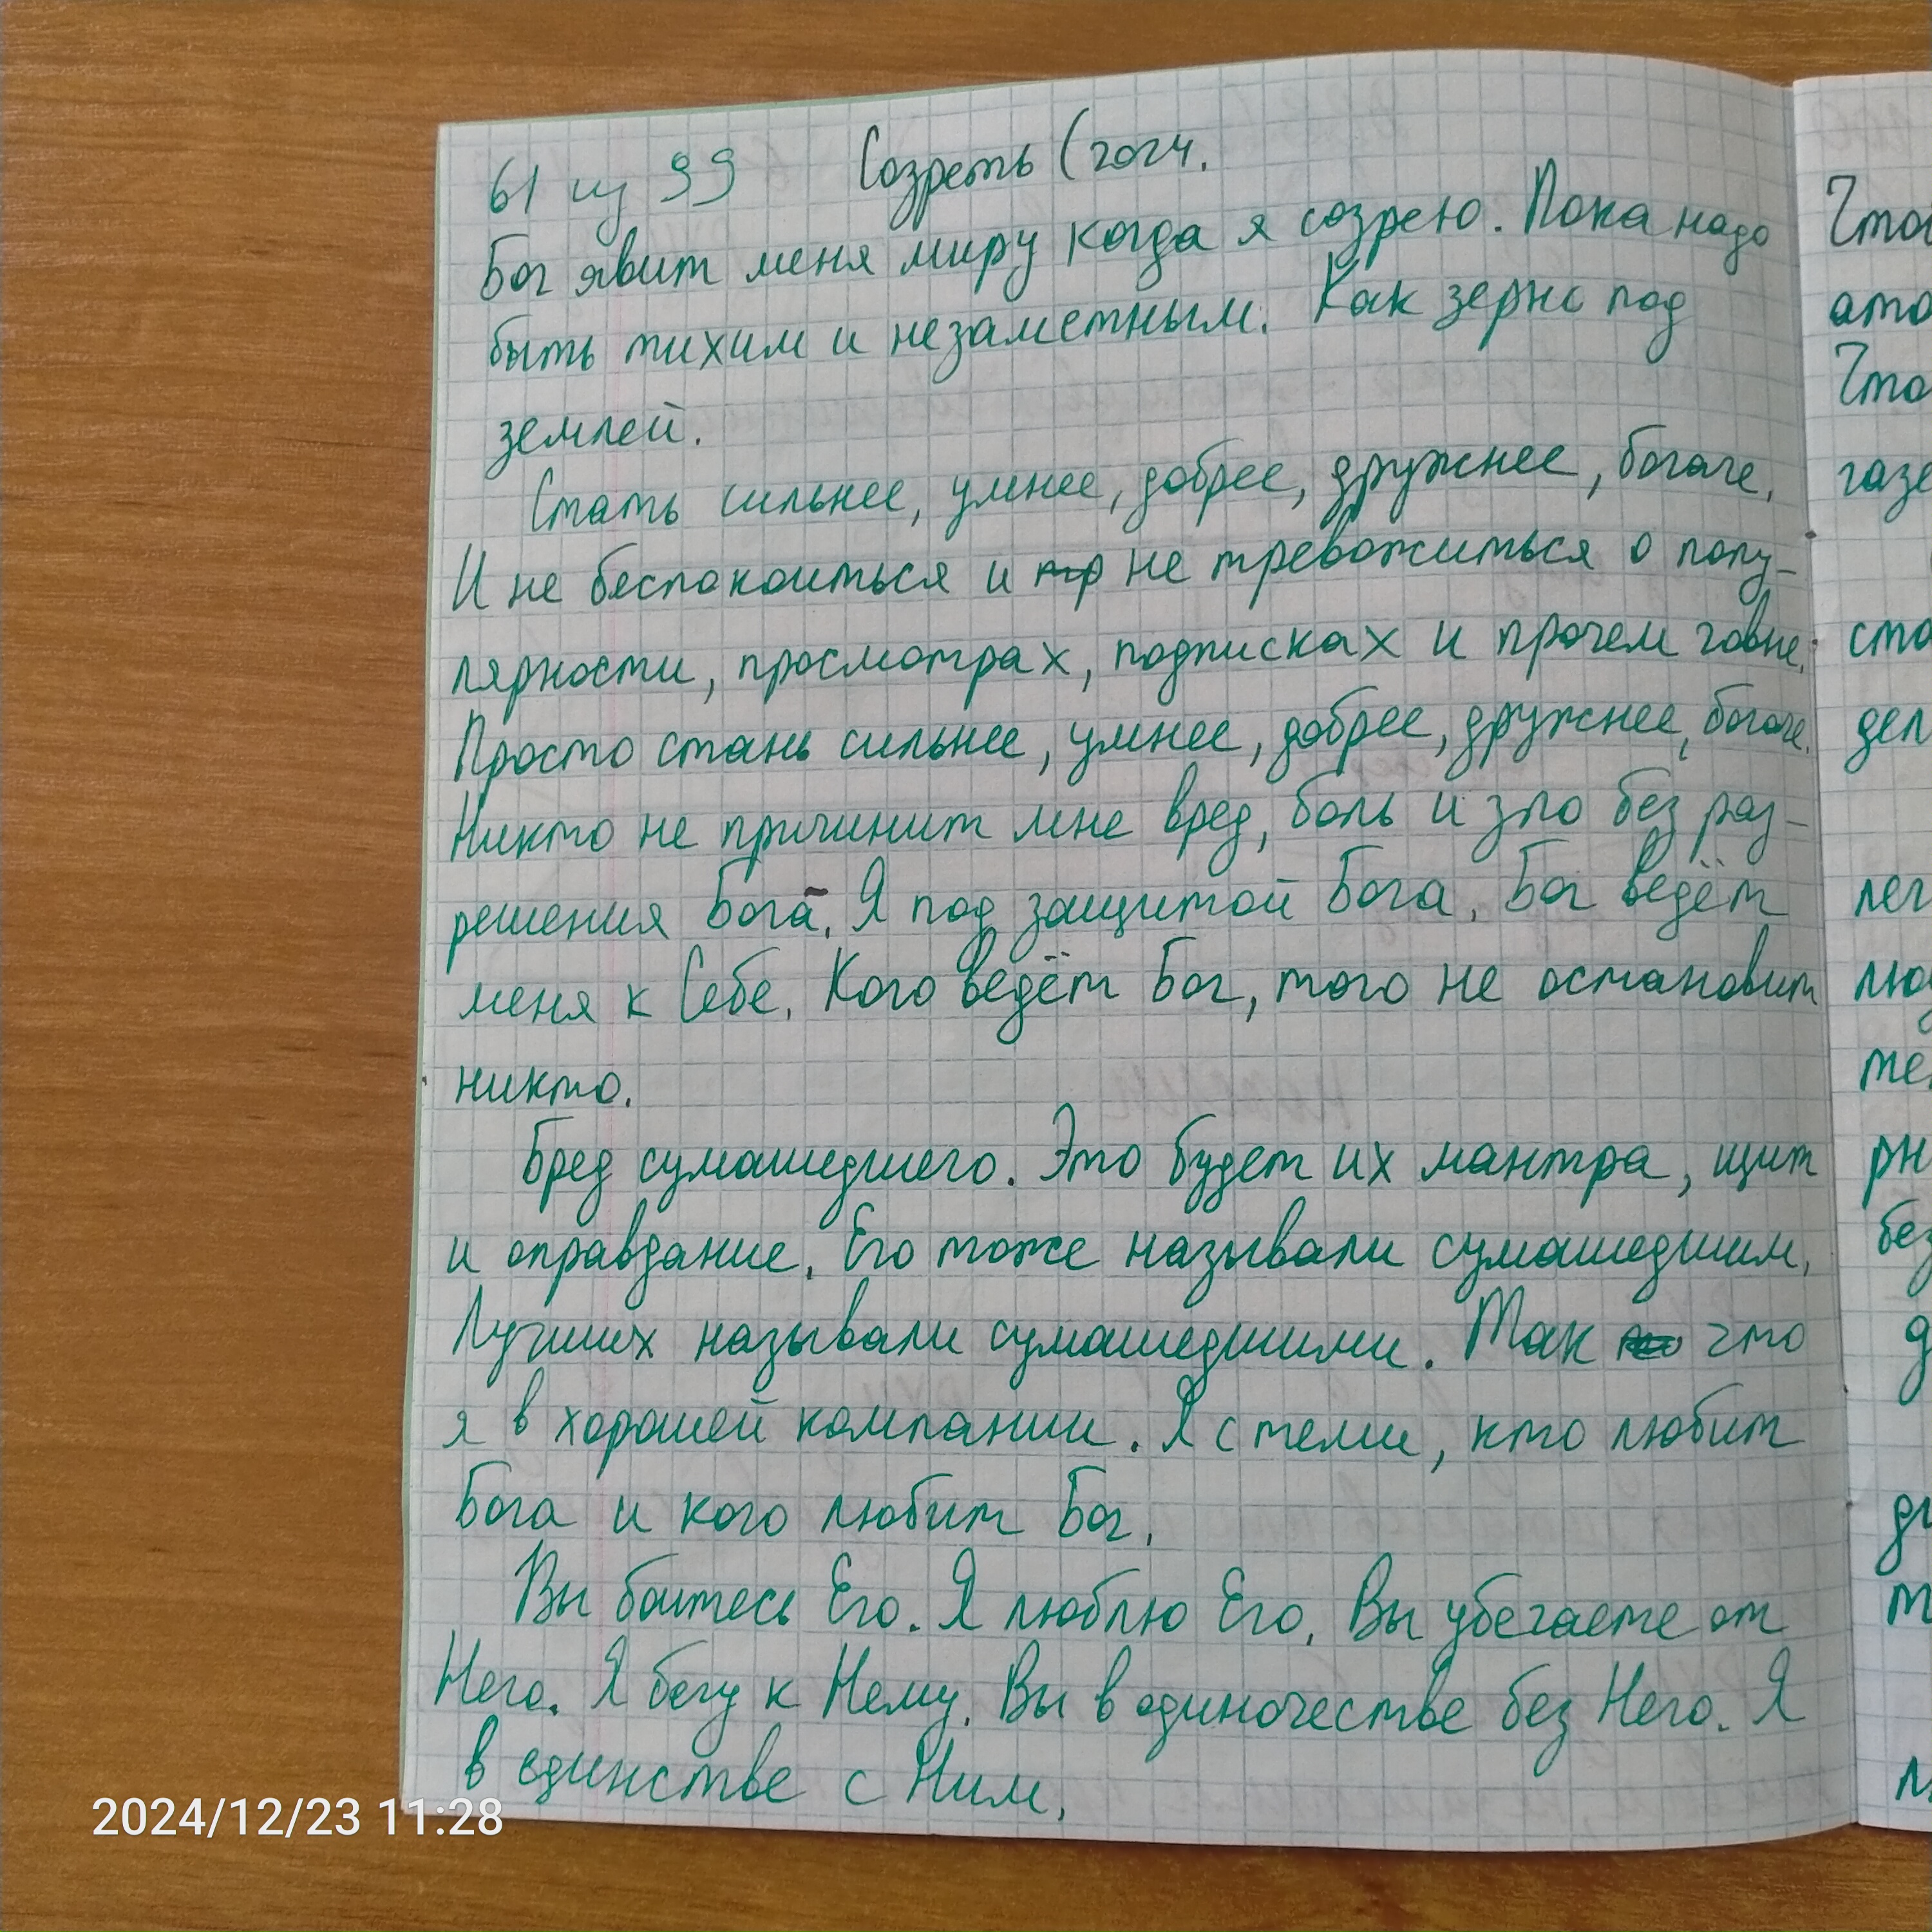 61 из 99 Созреть (гогч.
Бог явит меня миру когда я созрею. Пока надо
быть тихим и незаметным. Как зерно под
землей.
Стать сильнее, умнее, добрее, дружнее, богаче.
И не беспокоиться и не тревожиться о попу-
лярности, просмотрах, подписках и прочем говне.
Просто стань сильнее, умнее, добрее, дружнее, богаче.
Никто не причинит мне вред, боль и зло без раз-
решения Бога. Я под защитой Бога. Бог ведёт
меня к Себе. Кого ведёт Бог, того не остановит
никто.
Бред сумашедшего. Это будет их мантра, щит
и оправдание. Его тоже называли сумашедшим.
Лучших называли сумашедшими. Так что
я в хорошей компании. Я с теми, кто любит
Бога и кого любит Бог.
Вы боитесь Его. Я люблю Его. Вы убегаете от
Него. Я бегу к Нему. Вы в одиночестве без Него. Я
в единстве с Ним.
2024/12/23 11:28